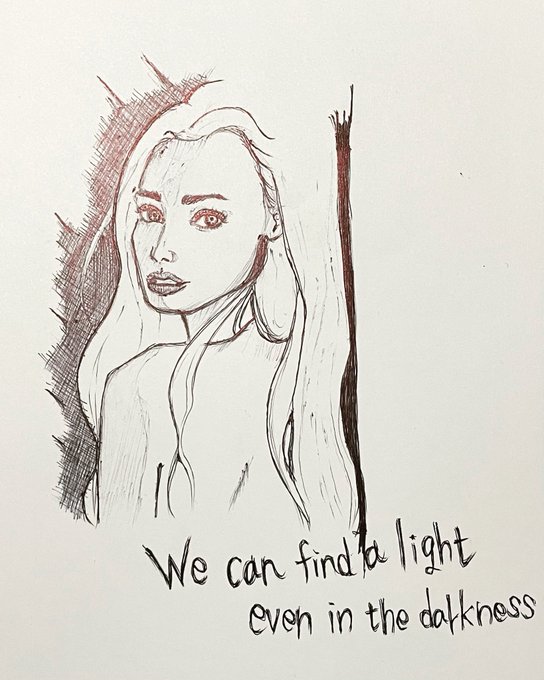 We can find a light
even in the darkness